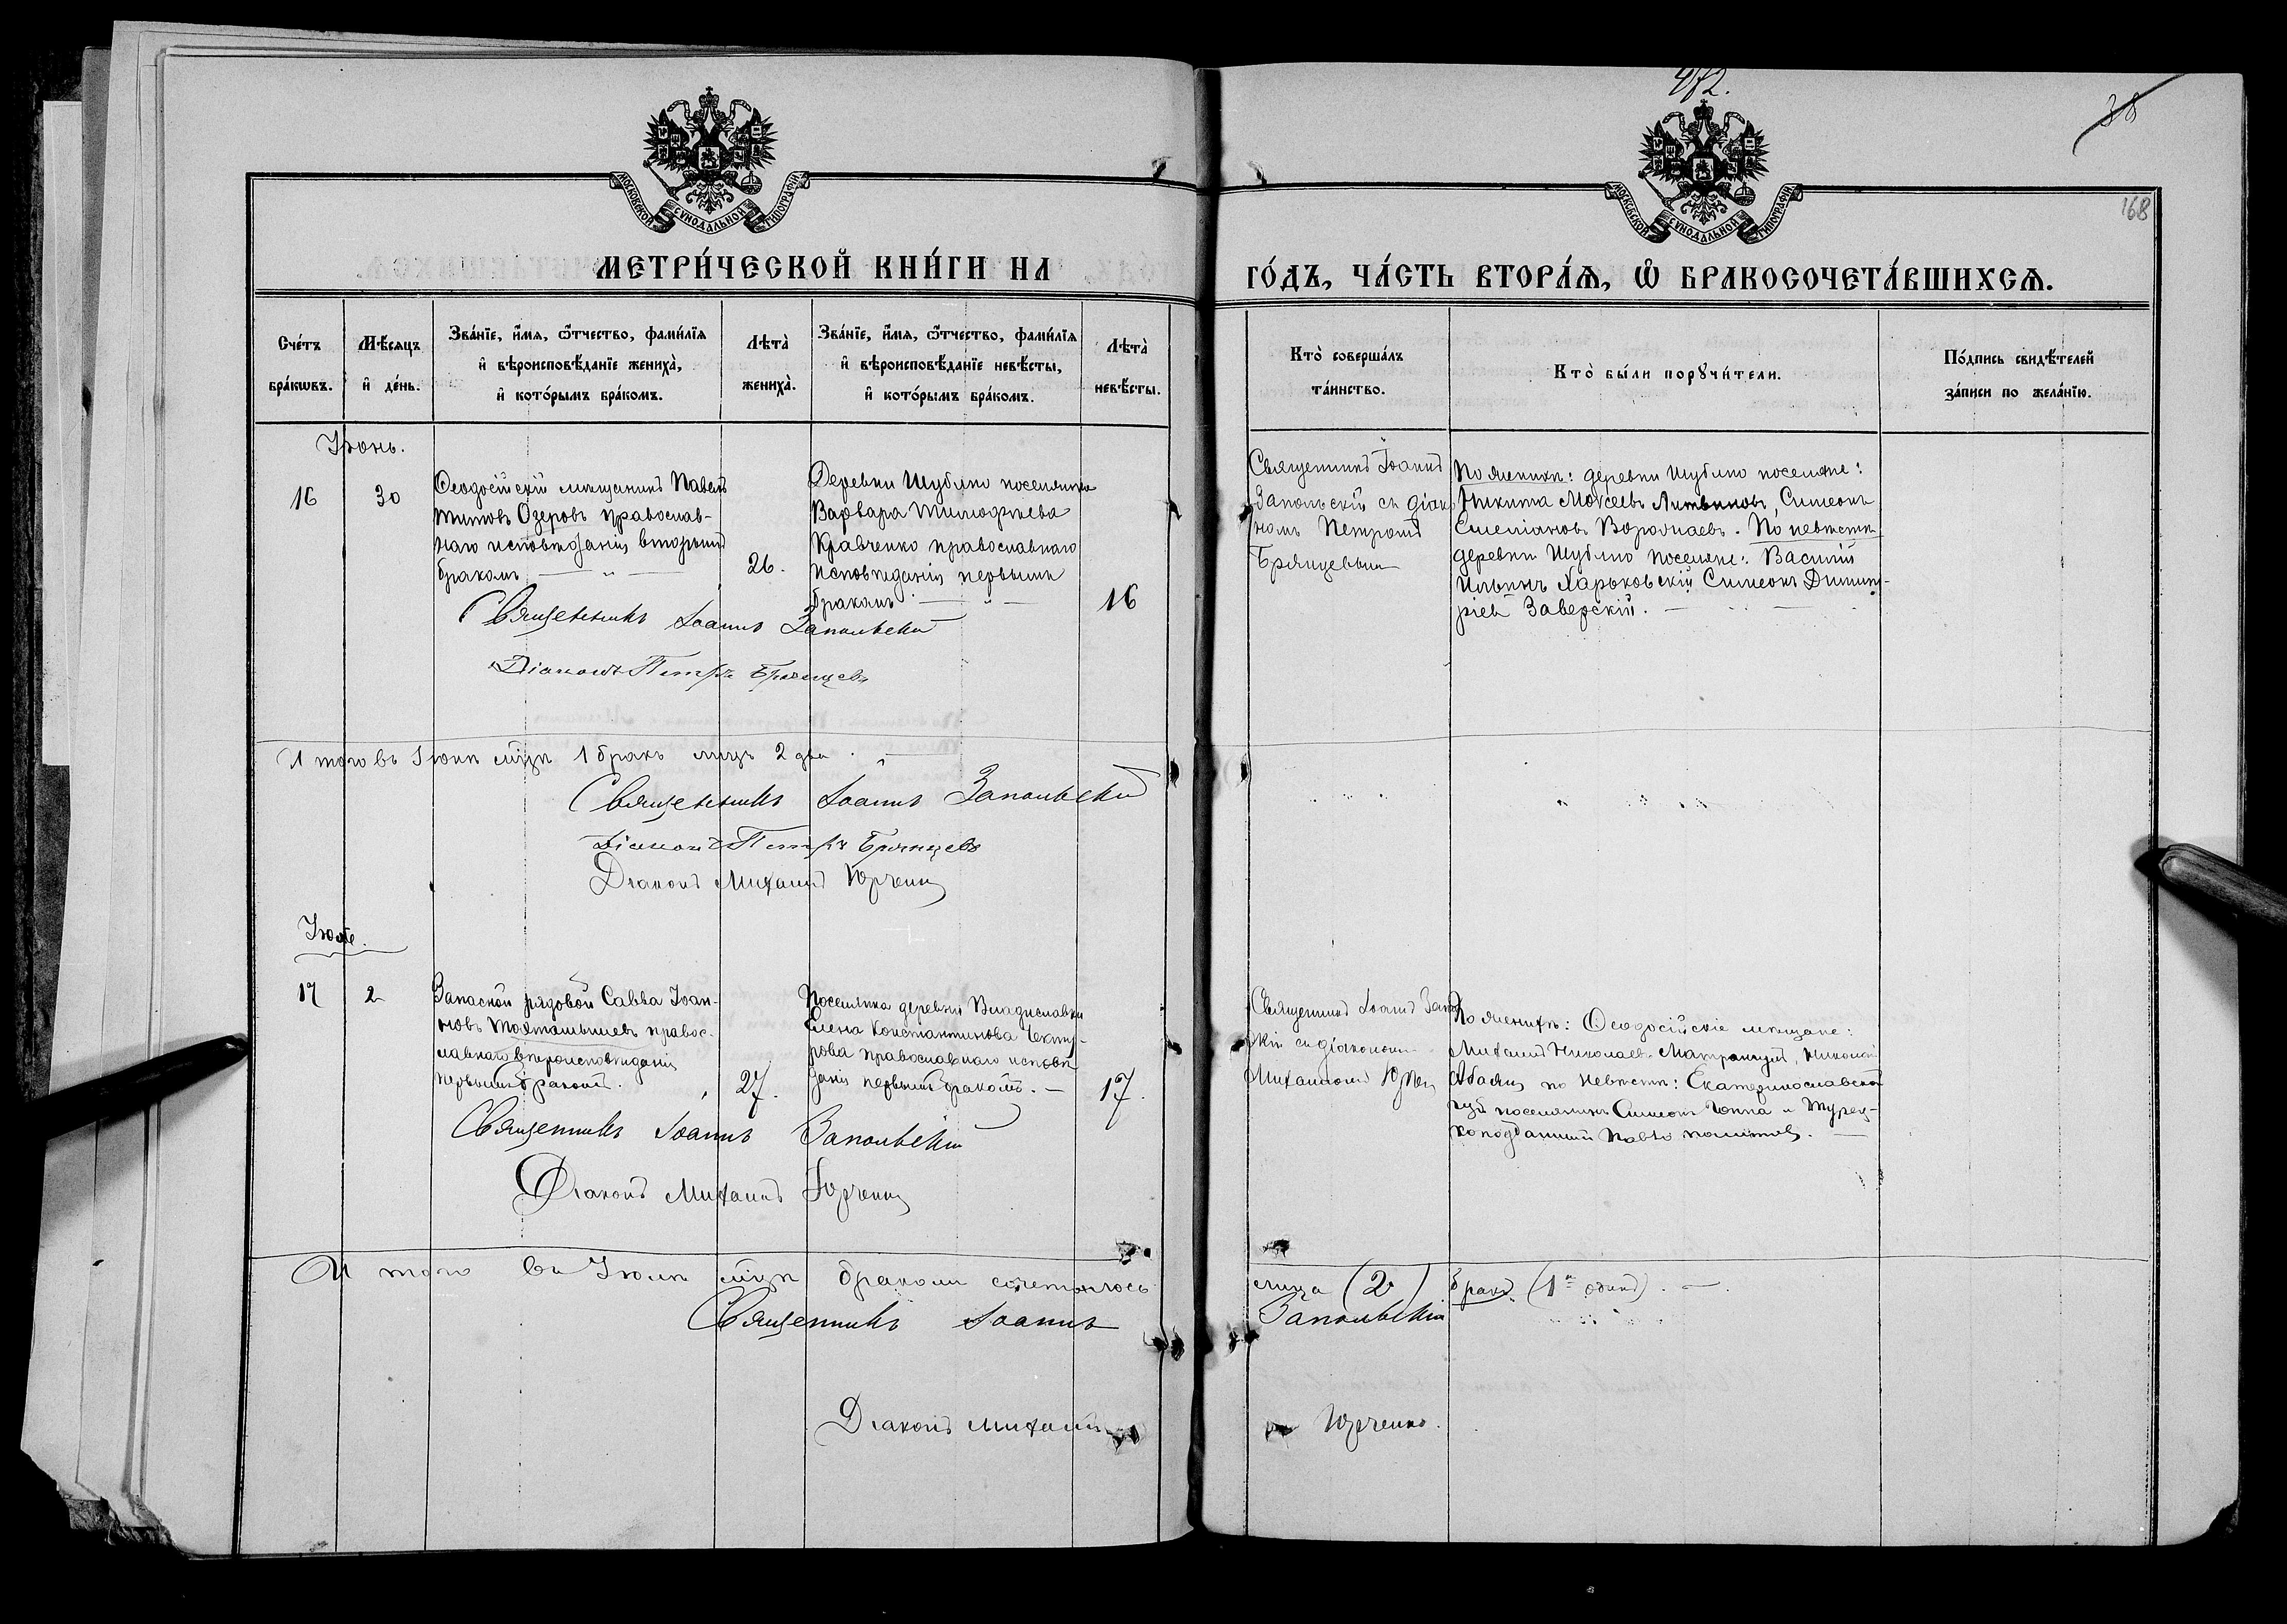 472.
38
168
МОСКОВСКОЙ СѴНОДАЛЬНОЙ ТИПОГРАФІИ
МОСКОВСКОЙ СѴНОДАЛЬНОЙ ТИПОГРАФІИ
МЕТРИ́ЧЕСКОЙ КНИ́ГИ НА
ГО́ДЪ, ЧА́СТЬ ВТОРА́Ѧ, Ѡ БРАКОСОЧЕТА́ВШИХСѦ.
Сче́тъ бра́кѡвъ.
Мѣ́сяцъ и҆ де́нь.
Зва́нїе, и҆́мѧ, ѻ҆́тчество, фами́лїѧ
и҆ вѣроисповѣ́данїе жениха̀,
и҆ кото́рымъ бра́комъ.
Лѣта̀ жениха̀.
Зва́нїе, и҆́мѧ, ѻ҆́тчество, фами́лїѧ
и҆ вѣроисповѣ́данїе невѣ́сты,
и҆ кото́рымъ бра́комъ.
Лѣта̀ невѣ́сты.
Кто̀ соверша́лъ
та́инство.
Кто̀ бы́ли порꙋчи́тели.
По́дпись свидѣ́телей
за́писи по жела́нїю.
Іюнь.
16
30
Ѳеодосійскій мѣщанинъ Павелъ
Титовъ Озеровъ православ-
наго исповѣданія вторымъ
бракомъ
26.
Деревни Шублю поселянка
Варвара Тимофѣева
Кравченко православнаго
исповѣданія первымъ
бракомъ
16
Священникъ Іоаннъ
Запольскій съ діако
номъ Петромъ
Брянцевымъ
По женихѣ: деревни Шублю поселяне:
Никита Моисеевъ Литвиновъ, Симеонъ
Емеліановъ Ворожаевъ. По невѣстѣ
деревни Шублю поселяне: Василій
Ильинъ Харьковскій Симеонъ Димит-
ріев Заверскій.
Священникъ Іоаннъ Запольскій
Діаконъ Петръ Брянцевъ
Итого въ Іюнѣ мѣцѣ 1 бракъ лицъ 2 два
Священникъ Іоаннъ Запольскій
Діаконъ Петръ Брянцевъ
Діаконъ Михаилъ Юрченко
Іюль.
17
2
Запасной рядовой Савва Іоан-
новъ правос-
лавнаго вѣроисповѣданія
первымъ бракомъ.
27.
Поселянка деревни Владиславки
Елена Константинова
православнаго исповѣ
данія первымъ бракомъ.
17.
Священникъ Іоаннъ Запол
скій съ діакономъ
Михаиломъ Юрчен
По женихѣ: Ѳеодосійскіе мѣщане:
Михаилъ Николаевъ Николай
по невѣстѣ: Екатеринославской
губ поселянинъ Симеонъ и Турец-
коподданный
Священникъ Іоаннъ Запольскій
Діаконъ Михаилъ Юрченко
Итого въ Іюлѣ мѣцѣ бракомъ сочеталось
лица (2) бракъ (1 одинъ).
Священникъ Іоаннъ Запольскій
Діаконъ Михаилъ Юрченко.